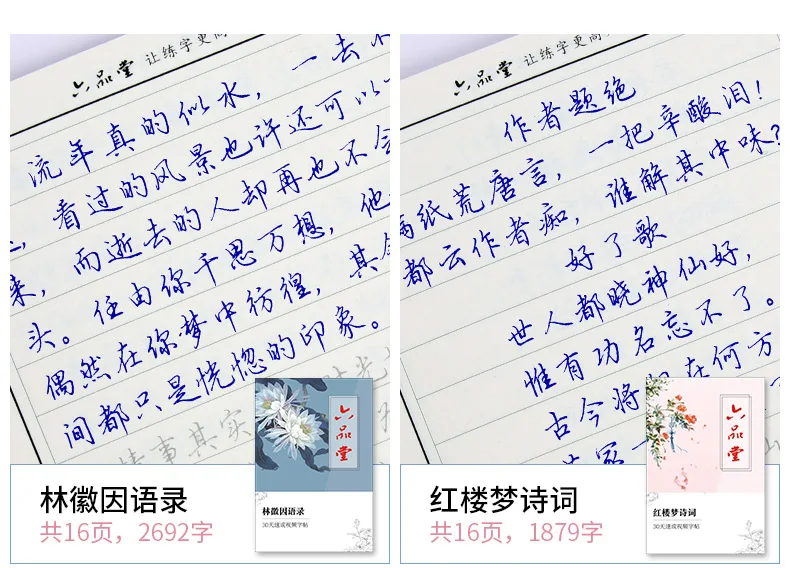 六品堂 让练字更高
流年真的似水，一去不
看过的风景也许还可以
而逝去的人却再也不会
来，任由你千思万想，他
头。
偶然在你梦中彷徨，其
间都只是恍惚的印象。
事其实
林徽因语录
共16页，2692字
六品堂
林徽因语录
30天速成视频字帖
六品堂 让练字更高
作者题绝
满纸荒唐言，一把辛酸泪！
都云作者痴，谁解其中味？
好了歌
世人都晓神仙好，
惟有功名忘不了。
古今将相在何方
红楼梦诗词
共16页，1879字
六品堂
红楼梦诗词
30天速成视频字帖